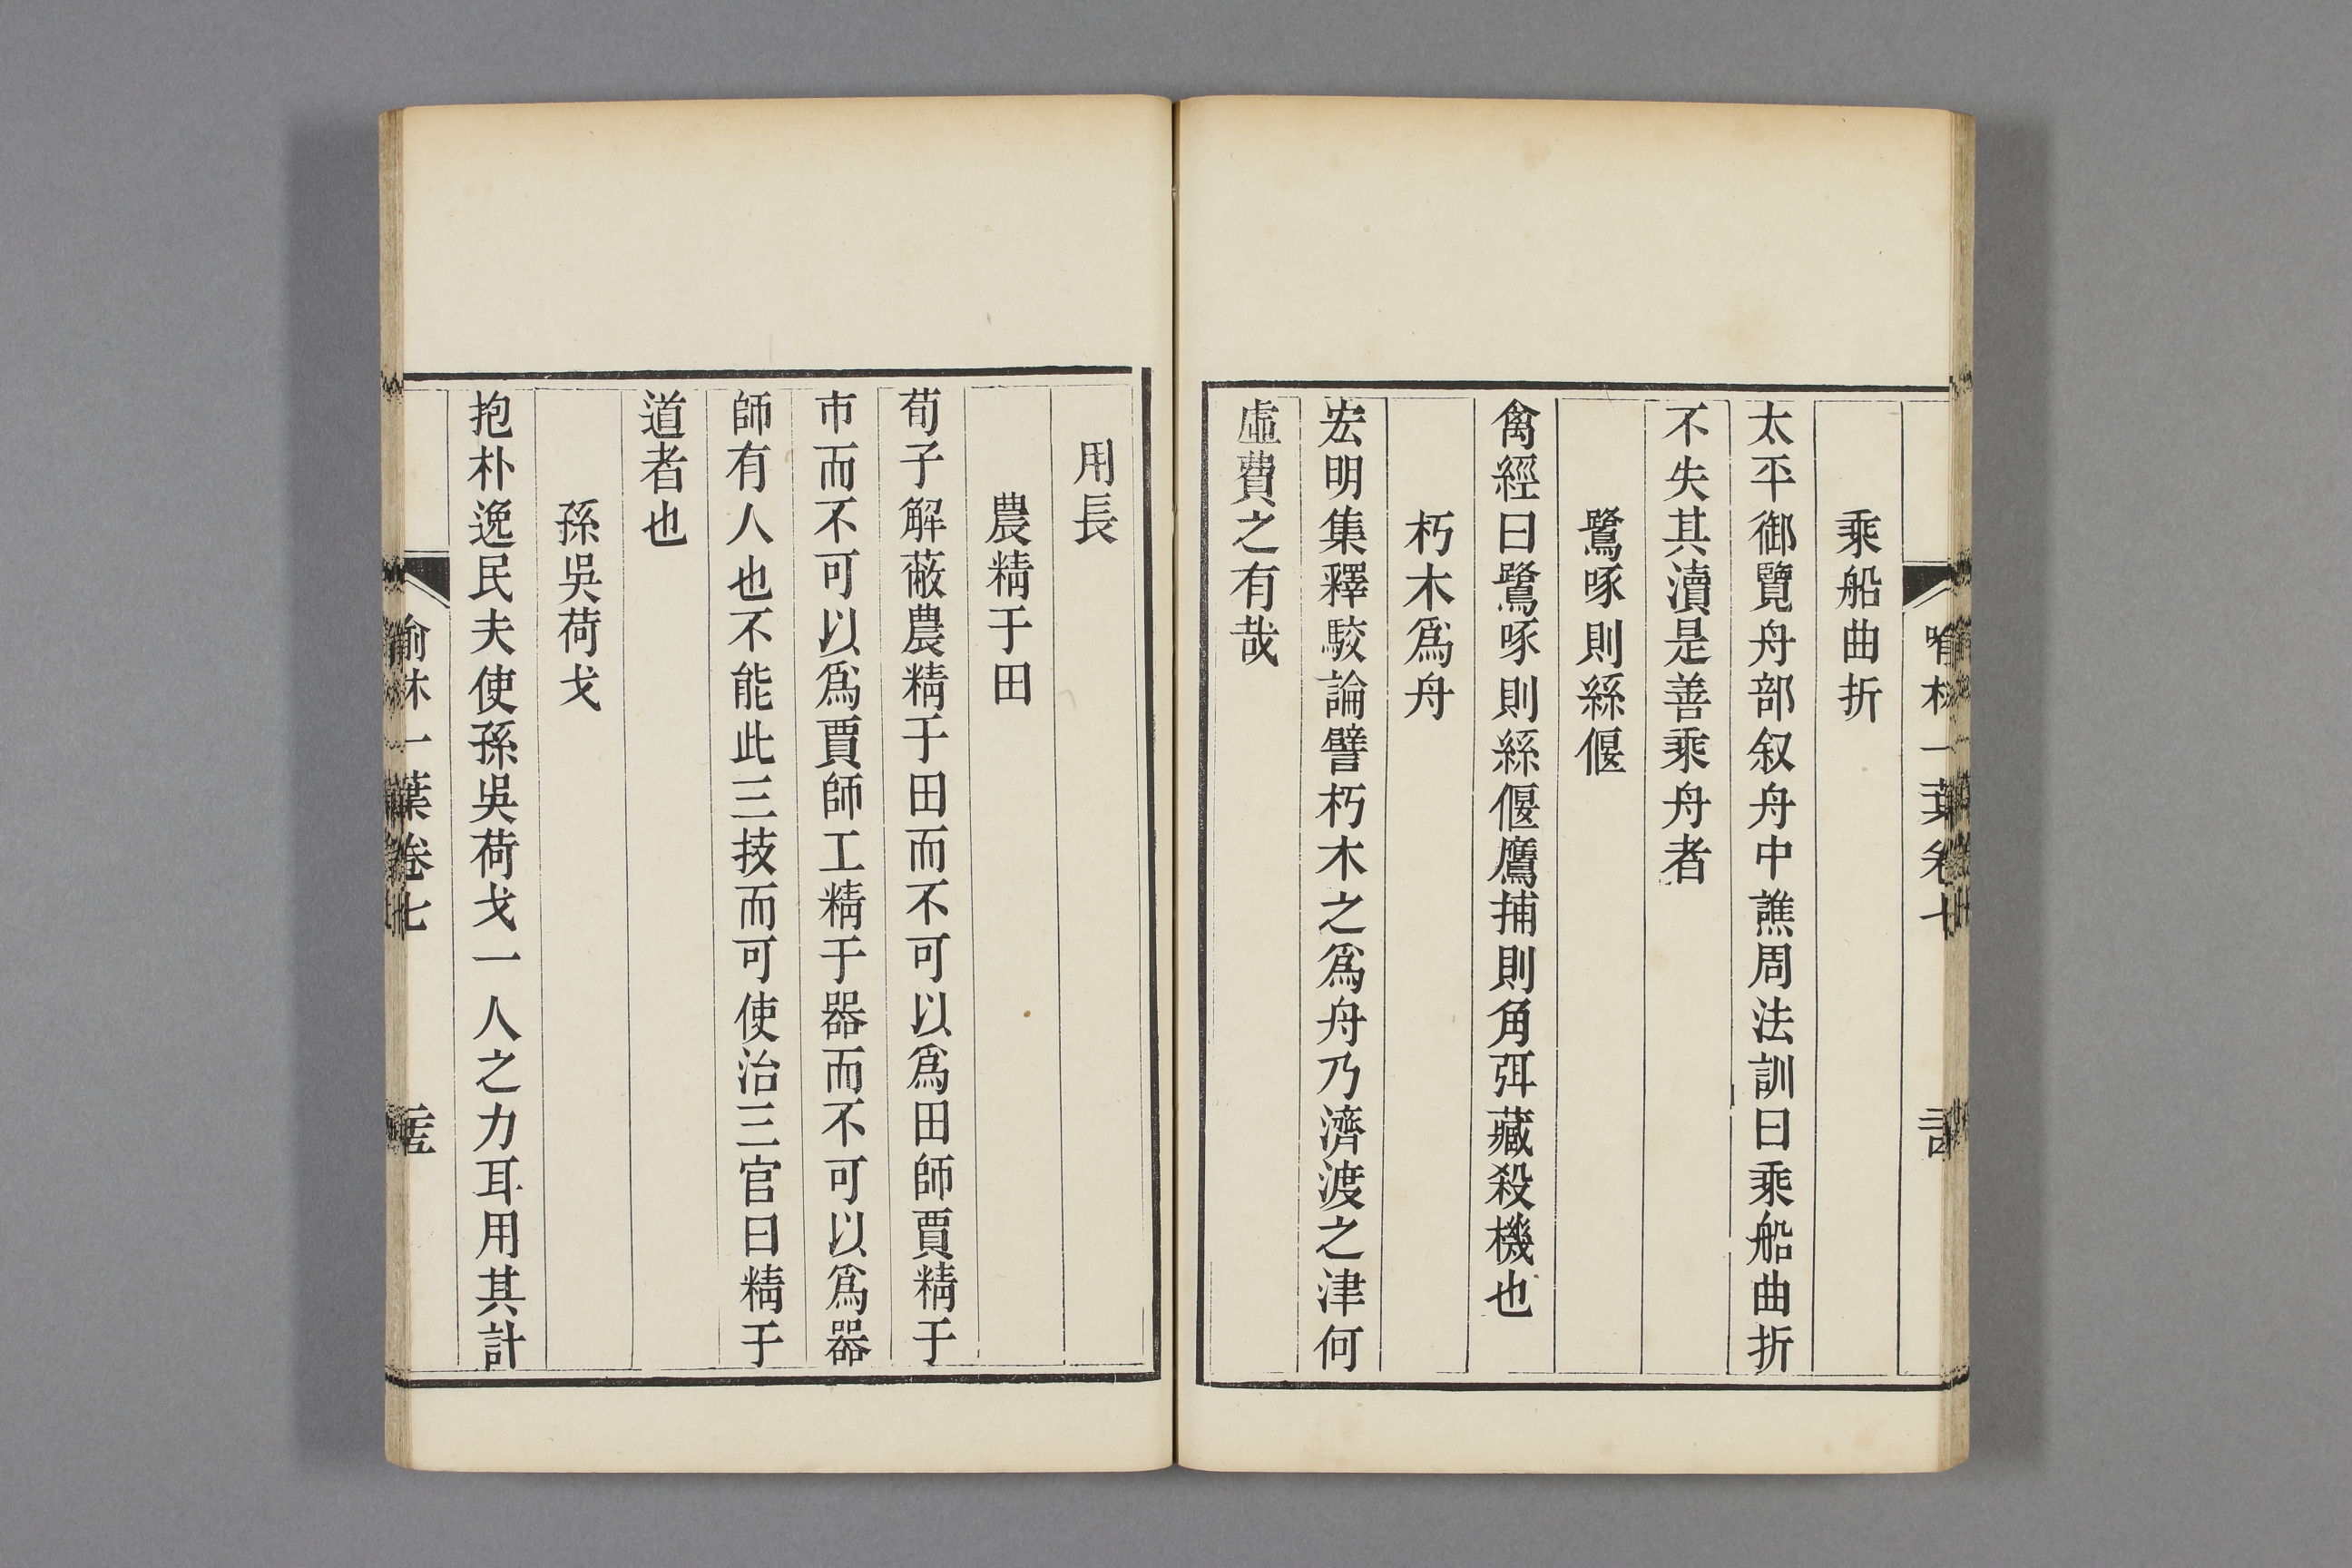 乘船曲折
太平御覽舟部叙舟中譙周法訓曰乘船曲折
不失其瀆是善乘舟者
鷺啄則絲偃
禽經曰鷺啄則絲偃鷹捕則角弭藏殺機也
朽木爲舟
宏明集釋駮論譬朽木之爲舟乃濟渡之津何
虛費之有哉
用長
農精于田
荀子解蔽農精于田而不可以爲田師賈精于
市而不可以爲賈師工精于器而不可以爲器
師有人也不能此三技而可使治三官曰精于
道者也
孫吳荷戈
抱朴逸民夫使孫吳荷戈一人之力耳用其計
喻林一葉卷七